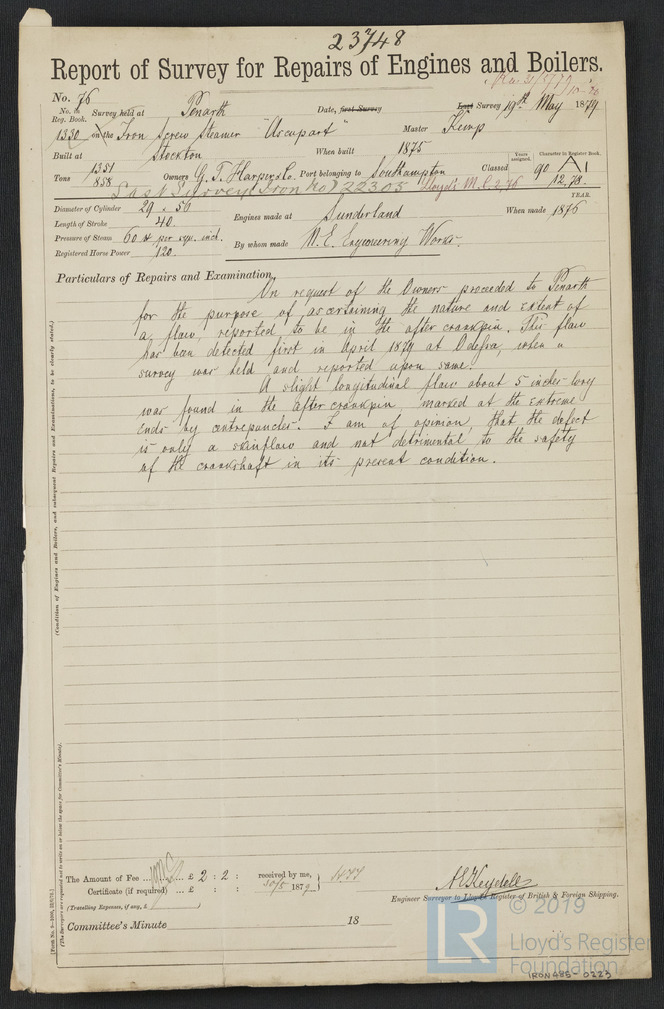 23748
Report of Survey for Repairs of Engines and Boilers.
No. 76
No. in Reg. Book. Survey held at Penarth Date, first Survey Last Survey 19th May 1879
1330 on the Iron Screw Steamer "Ascupart" Master Kemp
Built at Stockton When built 1875
Tons 1351 858 Owners G. T. Harper & Co. Port belonging to Southampton Classed Years assigned. 90 Character in Register Book. A1 12,78.
Last Survey Iron No 22305 Lloyd's M.C. 2,76 YEAR.
Diameter of Cylinder 29 × 56 Engines made at Sunderland When made 1876
Length of Stroke 40.
Pressure of Steam 60 lb per squ. inch. By whom made N. E. Engineering Works.
Registered Horse Power 120.
Particulars of Repairs and Examination.
On request of the Owners proceeded to Penarth
for the purpose of ascertaining the nature and extent of
a flaw, reported to be in the after crankpin. This flaw
has been detected first in April 1879 at Odessa, when a
survey was held and reported upon same.
A slight longitudinal flaw about 5 inches long
was found in the after crankpin, marked at the extreme
ends by centrepunches. I am of opinion, that the defect
is only a skinflaw and not detrimental to the safety
of the crankshaft in its present condition.
(Condition of Engines and Boilers, and subsequent Repairs and Examinations, to be clearly stated.)
(The Surveyors are requested not to write on or below the space for Committee's Minute).
The Amount of Fee ... £ 2 : 2 : received by me,
Certificate (if required) ... £ : : 30/5 1879
(Travelling Expenses, if any, £ )
Engineer Surveyor to Lloyd's Register of British & Foreign Shipping.
Committee's Minute 18
LR
© 2019
Lloyd's Register
Foundation
IRON485-0223